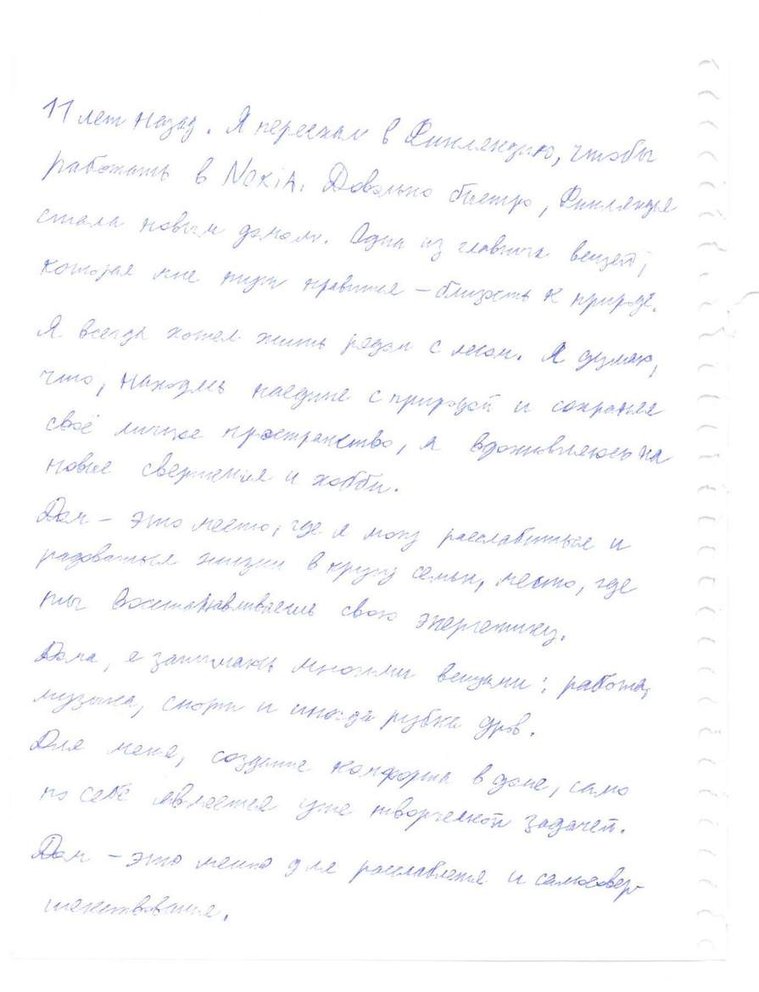 11 лет назад. Я переехал в Финляндию, чтобы
работать в NOKIA. Довольно быстро, Финляндия
стала новым домом. Один из главных вещей,
которая мне тут нравится – близость к природе.
Я всегда хотел жить рядом с лесом. Я думаю,
что, находясь наедине с природой и сохраняя
своё личное пространство, я вдохновляюсь на
новые свершения и хобби.
Дом – это место, где я могу расслабиться и
радоваться жизни в кругу семьи, место, где
ты восстанавливаешь свою энергетику.
Дома, я занимаюсь многими вещами: работа,
музыка, спорт и иногда рубка дров.
Для меня, создание комфорта в доме, само
по себе является уже творческой задачей.
Дом – это место для расслабления и самосовер-
шенствования.